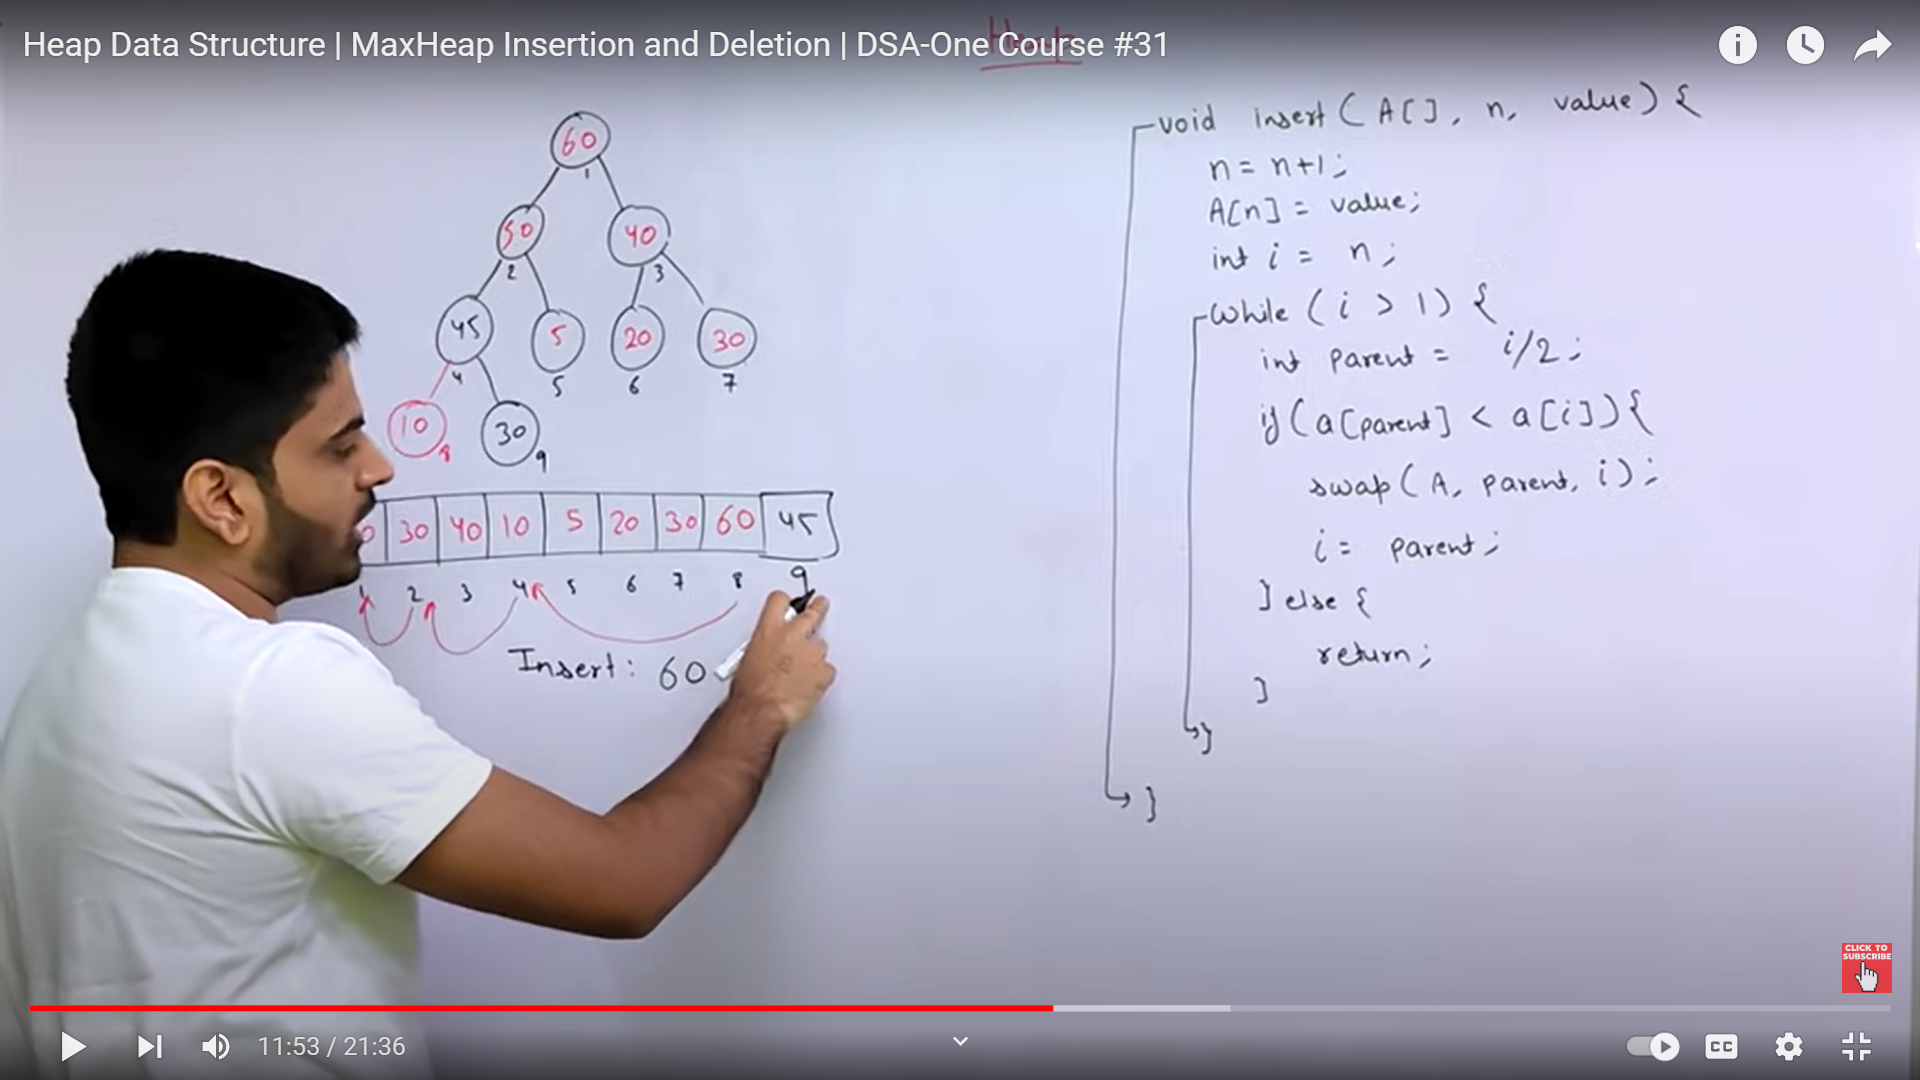 Heap Data Structure | MaxHeap Insertion and Deletion | DSA-One Course #31
Heap
60
1
50 40
2 3
45 5 20 30
4 5 6 7
10 30
8 9
0 30 40 10 5 20 30 60 45
1 2 3 4 5 6 7 8 9
Insert: 60
void insert(A[], n, value){
n = n+1;
A[n] = value;
int i = n;
while (i > 1) {
int parent = i/2;
if(a[parent] < a[i]){
swap(A, parent, i);
i = parent;
} else {
return;
}
}
}
CLICK TO
SUBSCRIBE
11:53 / 21:36
CC